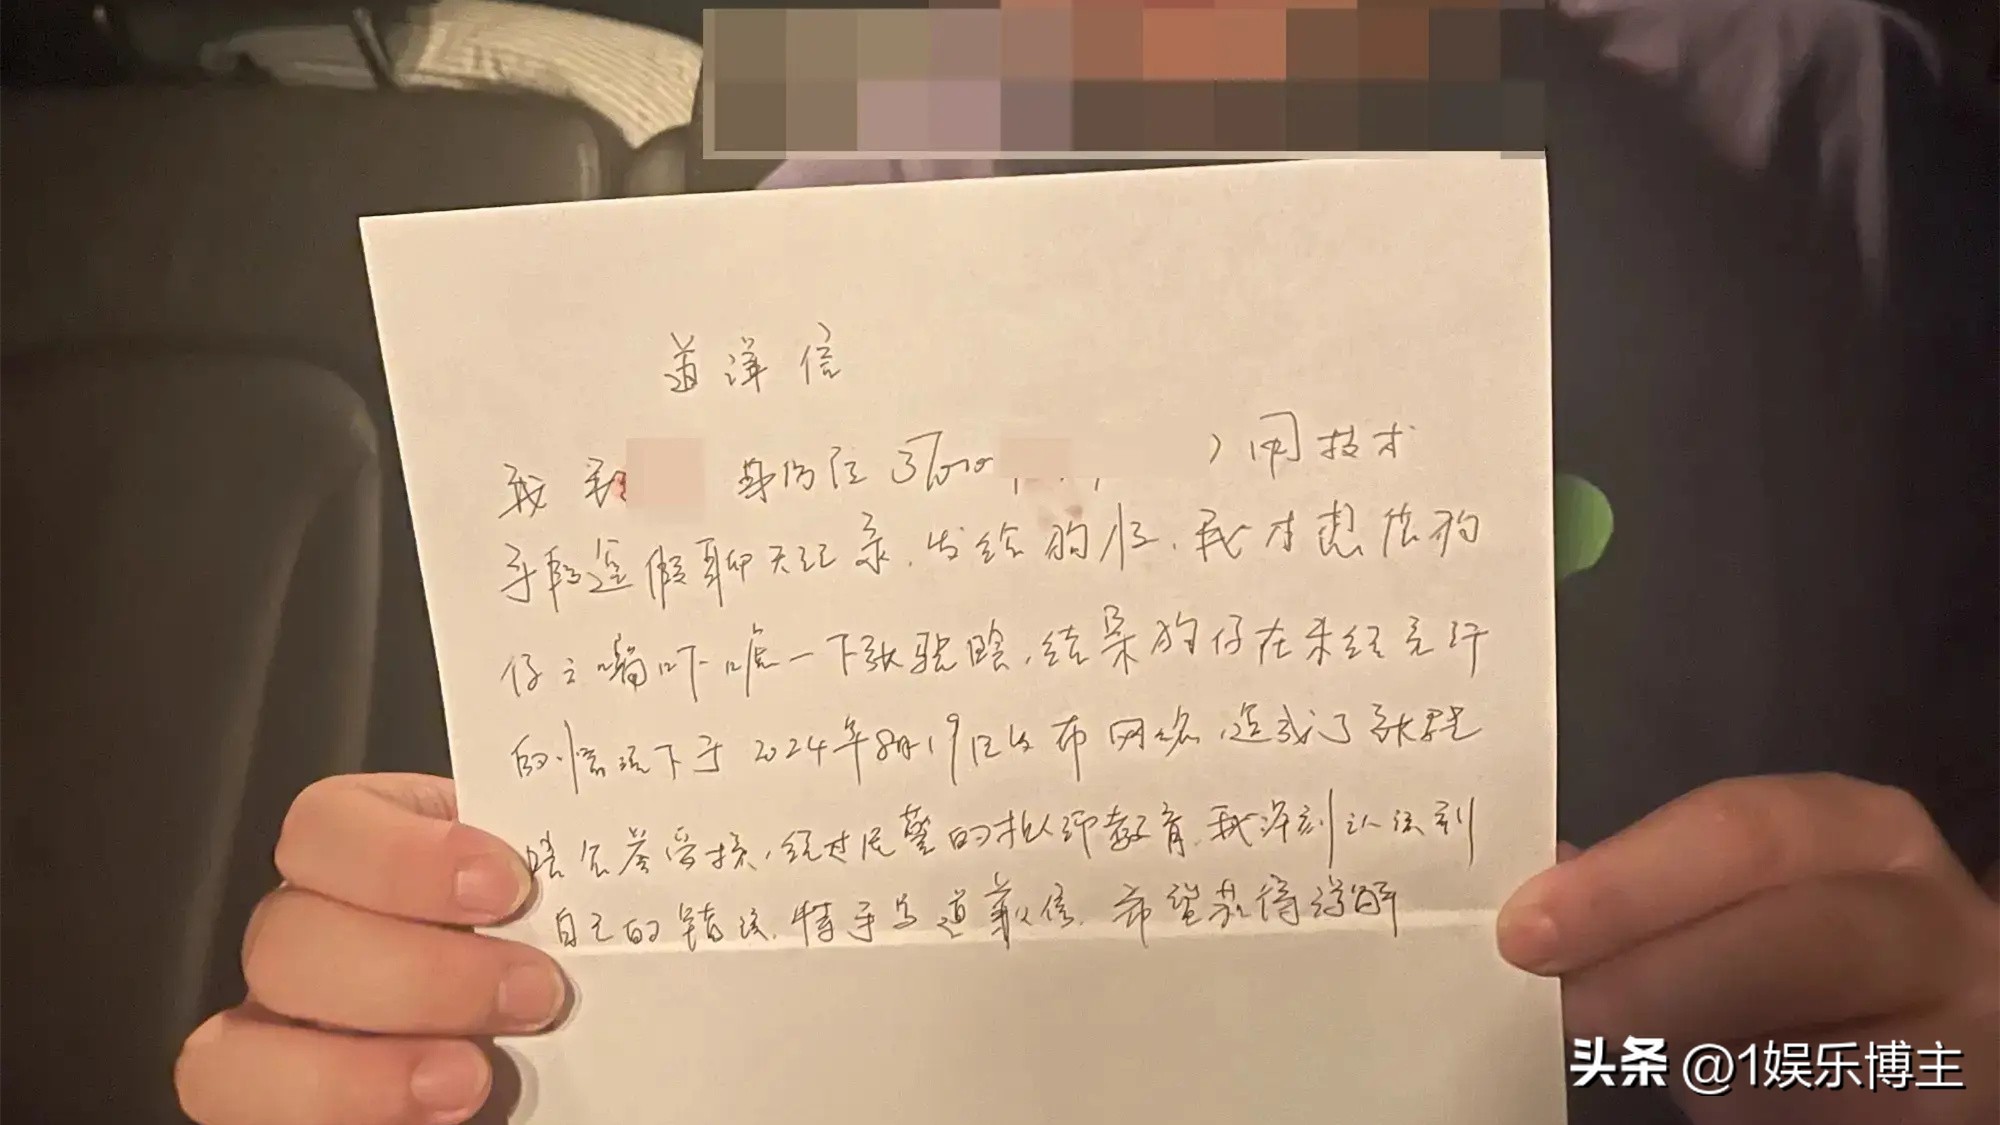 道洋信
我 身份证 3600 ) 用技术
手段造假聊天记录,发给狗仔,我才想借狗
仔之嘴吓唬一下张晗,结果狗仔在未经允许
的情况下于2024年8月19日发布网络,造成了张
晗名誉受损,经过民警的批评教育,我深刻认识到
自己的错误,特手写道歉信,希望获得谅解
头条 @1娱乐博主